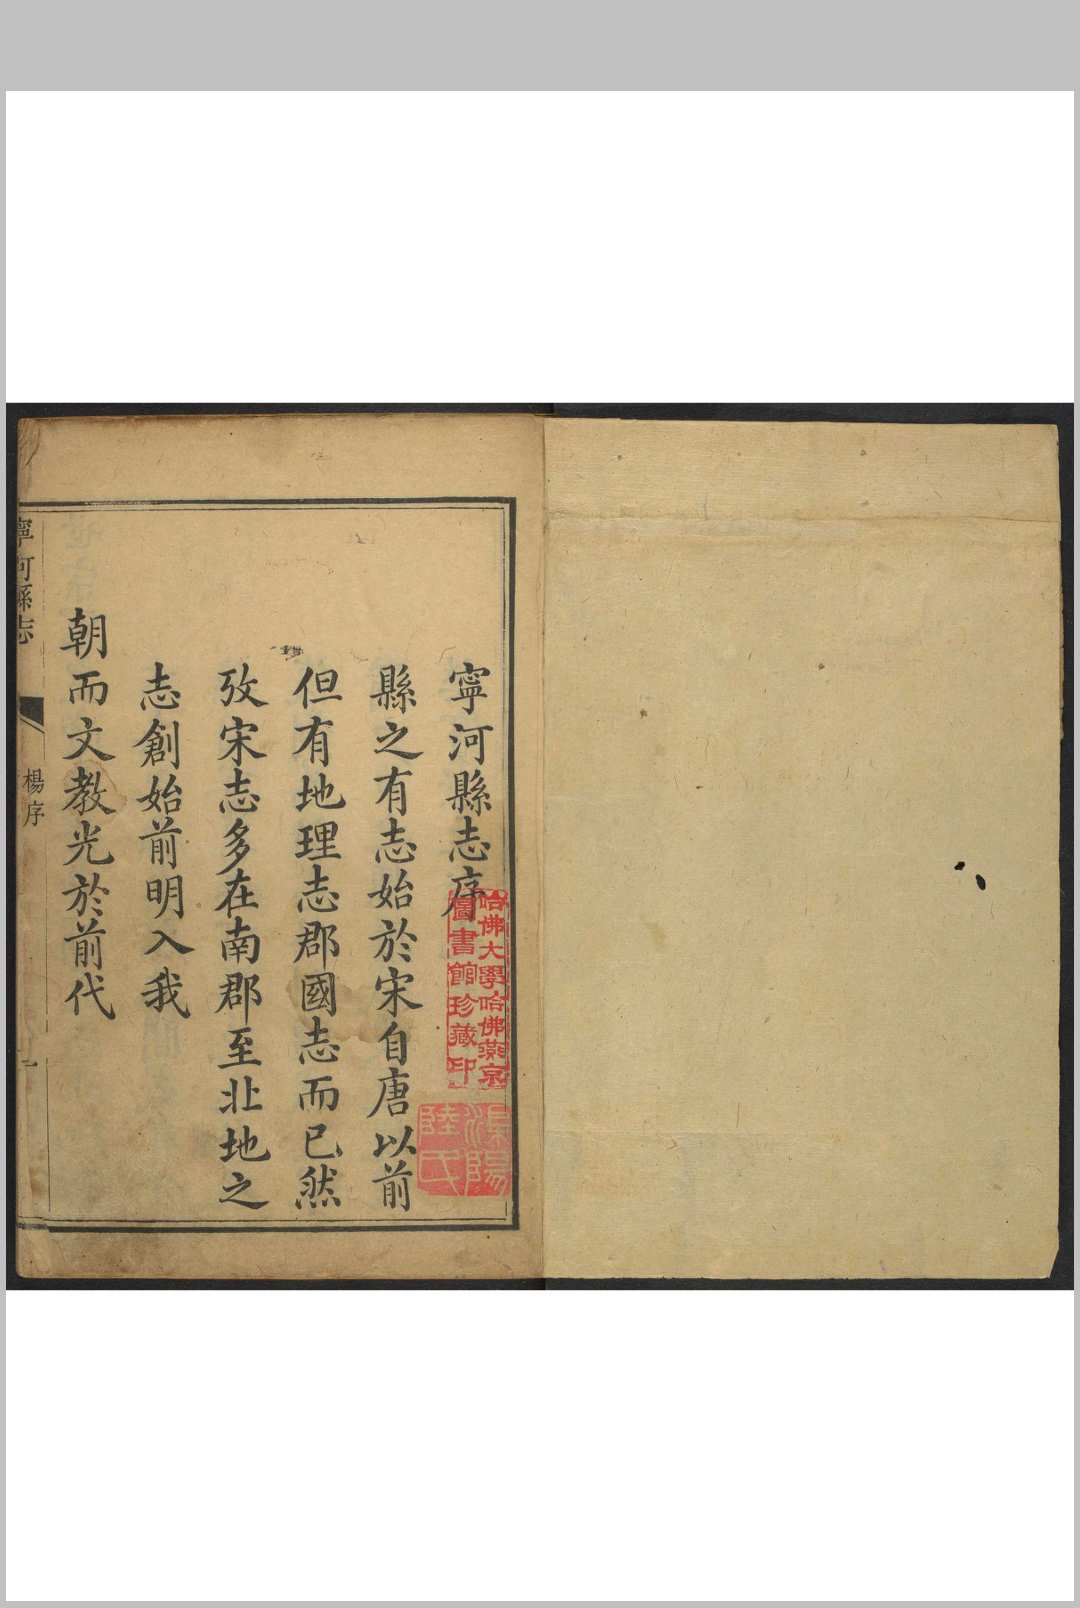 寧河縣志序
縣之有志始於宋自唐以前
但有地理志郡國志而已然
攷宋志多在南郡至北地之
志創始前明入我
朝而文教光於前代
寧河縣志
楊序
一
哈佛大學哈佛燕京
圖書館珍藏印
溧陽
陸氏